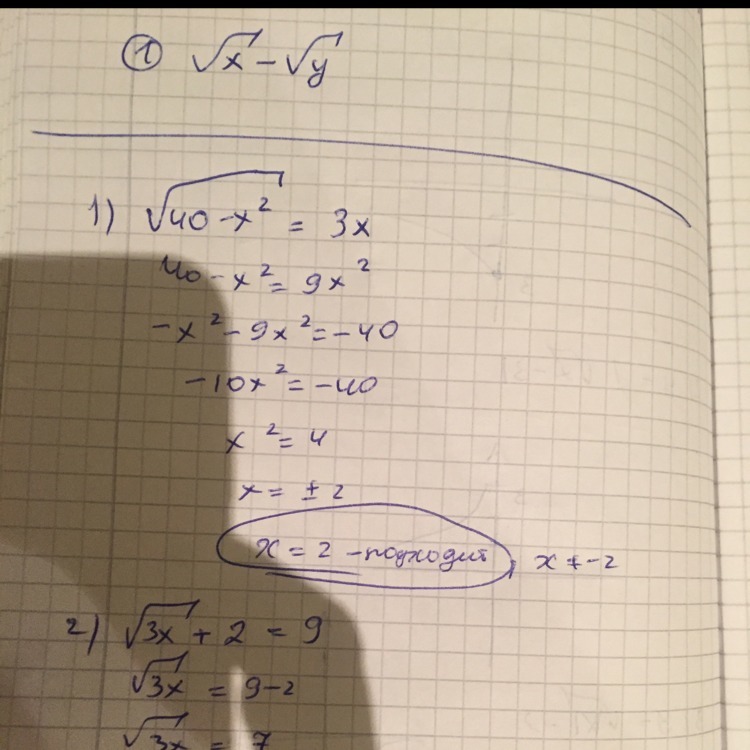 ① √x - √y
1) √40-x² = 3x
40-x² = 9x²
-x²-9x² = -40
-10x² = -40
x² = 4
x = ± 2
x = 2 - подходит, x ≠ -2
2) √3x + 2 = 9
√3x = 9-2
√3x = 7